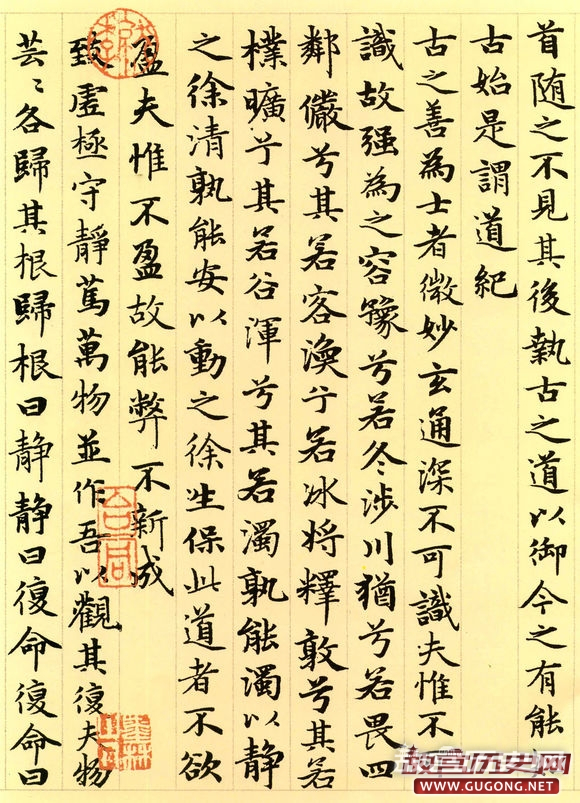 首随之不見其後執古之道以御今之有能
古始是謂道紀
古之善為士者微妙玄通深不可識夫惟不
識故强為之容豫兮若冬涉川猶兮若畏四
鄰儼兮其若客渙兮若冰将釋敦兮其若
樸曠兮其若谷渾兮其若濁孰能濁以静
之徐清孰能安以動之徐生保此道者不欲
盈夫惟不盈故能弊不新成
致虛極守靜篤萬物並作吾以觀其復夫物
芸〻各歸其根歸根曰静静曰復命復命曰
历史网
WWW.GUGONG.NET